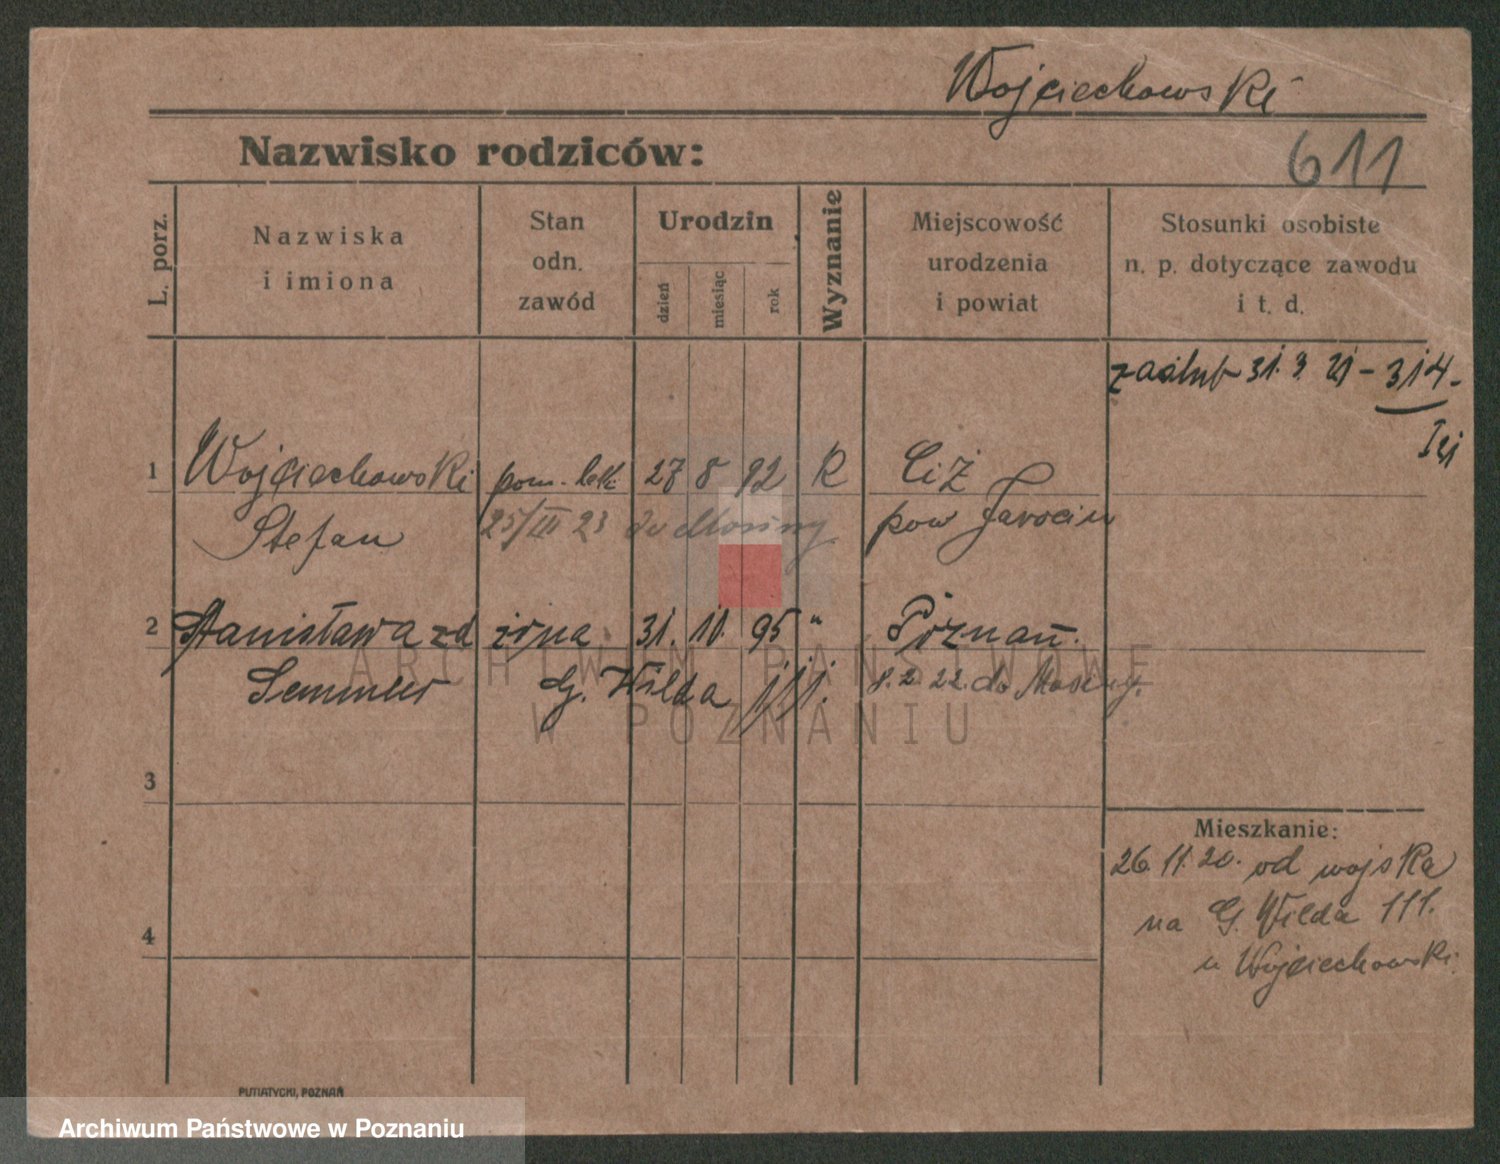 Wojciechowski
611
Nazwisko rodziców:
L. porz.
Nazwiska
i imiona
Stan
odn.
zawód
Urodzin
dzień
miesiąc
rok
Wyznanie
Miejscowość
urodzenia
i powiat
Stosunki osobiste
n. p. dotyczące zawodu
i t. d.
zaślub 31. 3. 21 - 314-
1 Wojciechowski pom. 27 8 92 R
Stefan 25/III 23 do Mosiny pow Jarocin
2 Stanisława zd żona 31. 10. 95 " Poznań.
G. Wilda 111. 8. 2 22. do Mosiny.
3
4
Mieszkanie:
26. 11. 20. od wojska
na G. Wilda 111.
u Wojciechowski
PUTIATYCKI, POZNAŃ
ARCHIWUM PAŃSTWOWE
W POZNANIU
Archiwum Państwowe w Poznaniu